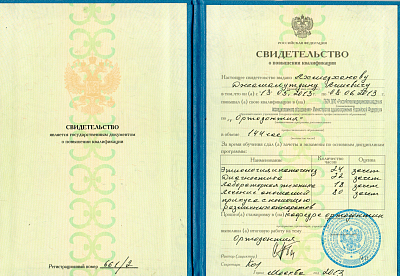 СВИДЕТЕЛЬСТВО
является государственным документом
о повышении квалификации
Регистрационный номер 661/2
РОССИЙСКАЯ ФЕДЕРАЦИЯ
СВИДЕТЕЛЬСТВО
о повышении квалификации
Настоящее свидетельство выдано
в том, что он(а) с 13.05.2013 по 08.06.2013
повышал(а) свою квалификацию в
по „Ортодонтия“
в объеме 144 час
За время обучения сдал(а) зачеты и экзамены по основным дисциплинам
программы:
Наименование Количество часов Оценка
24 зачет
Диагностика 22 зачет
Лабораторная техника 18 зачет
80 зачет
прикуса с помощью
аппаратов
Прошел(а) стажировку в (на) кафедре ортодонтии
выполнил(а) итоговую работу на тему
Ортодонтия
Ректор (директор)
Секретарь
Город Москва год 2013